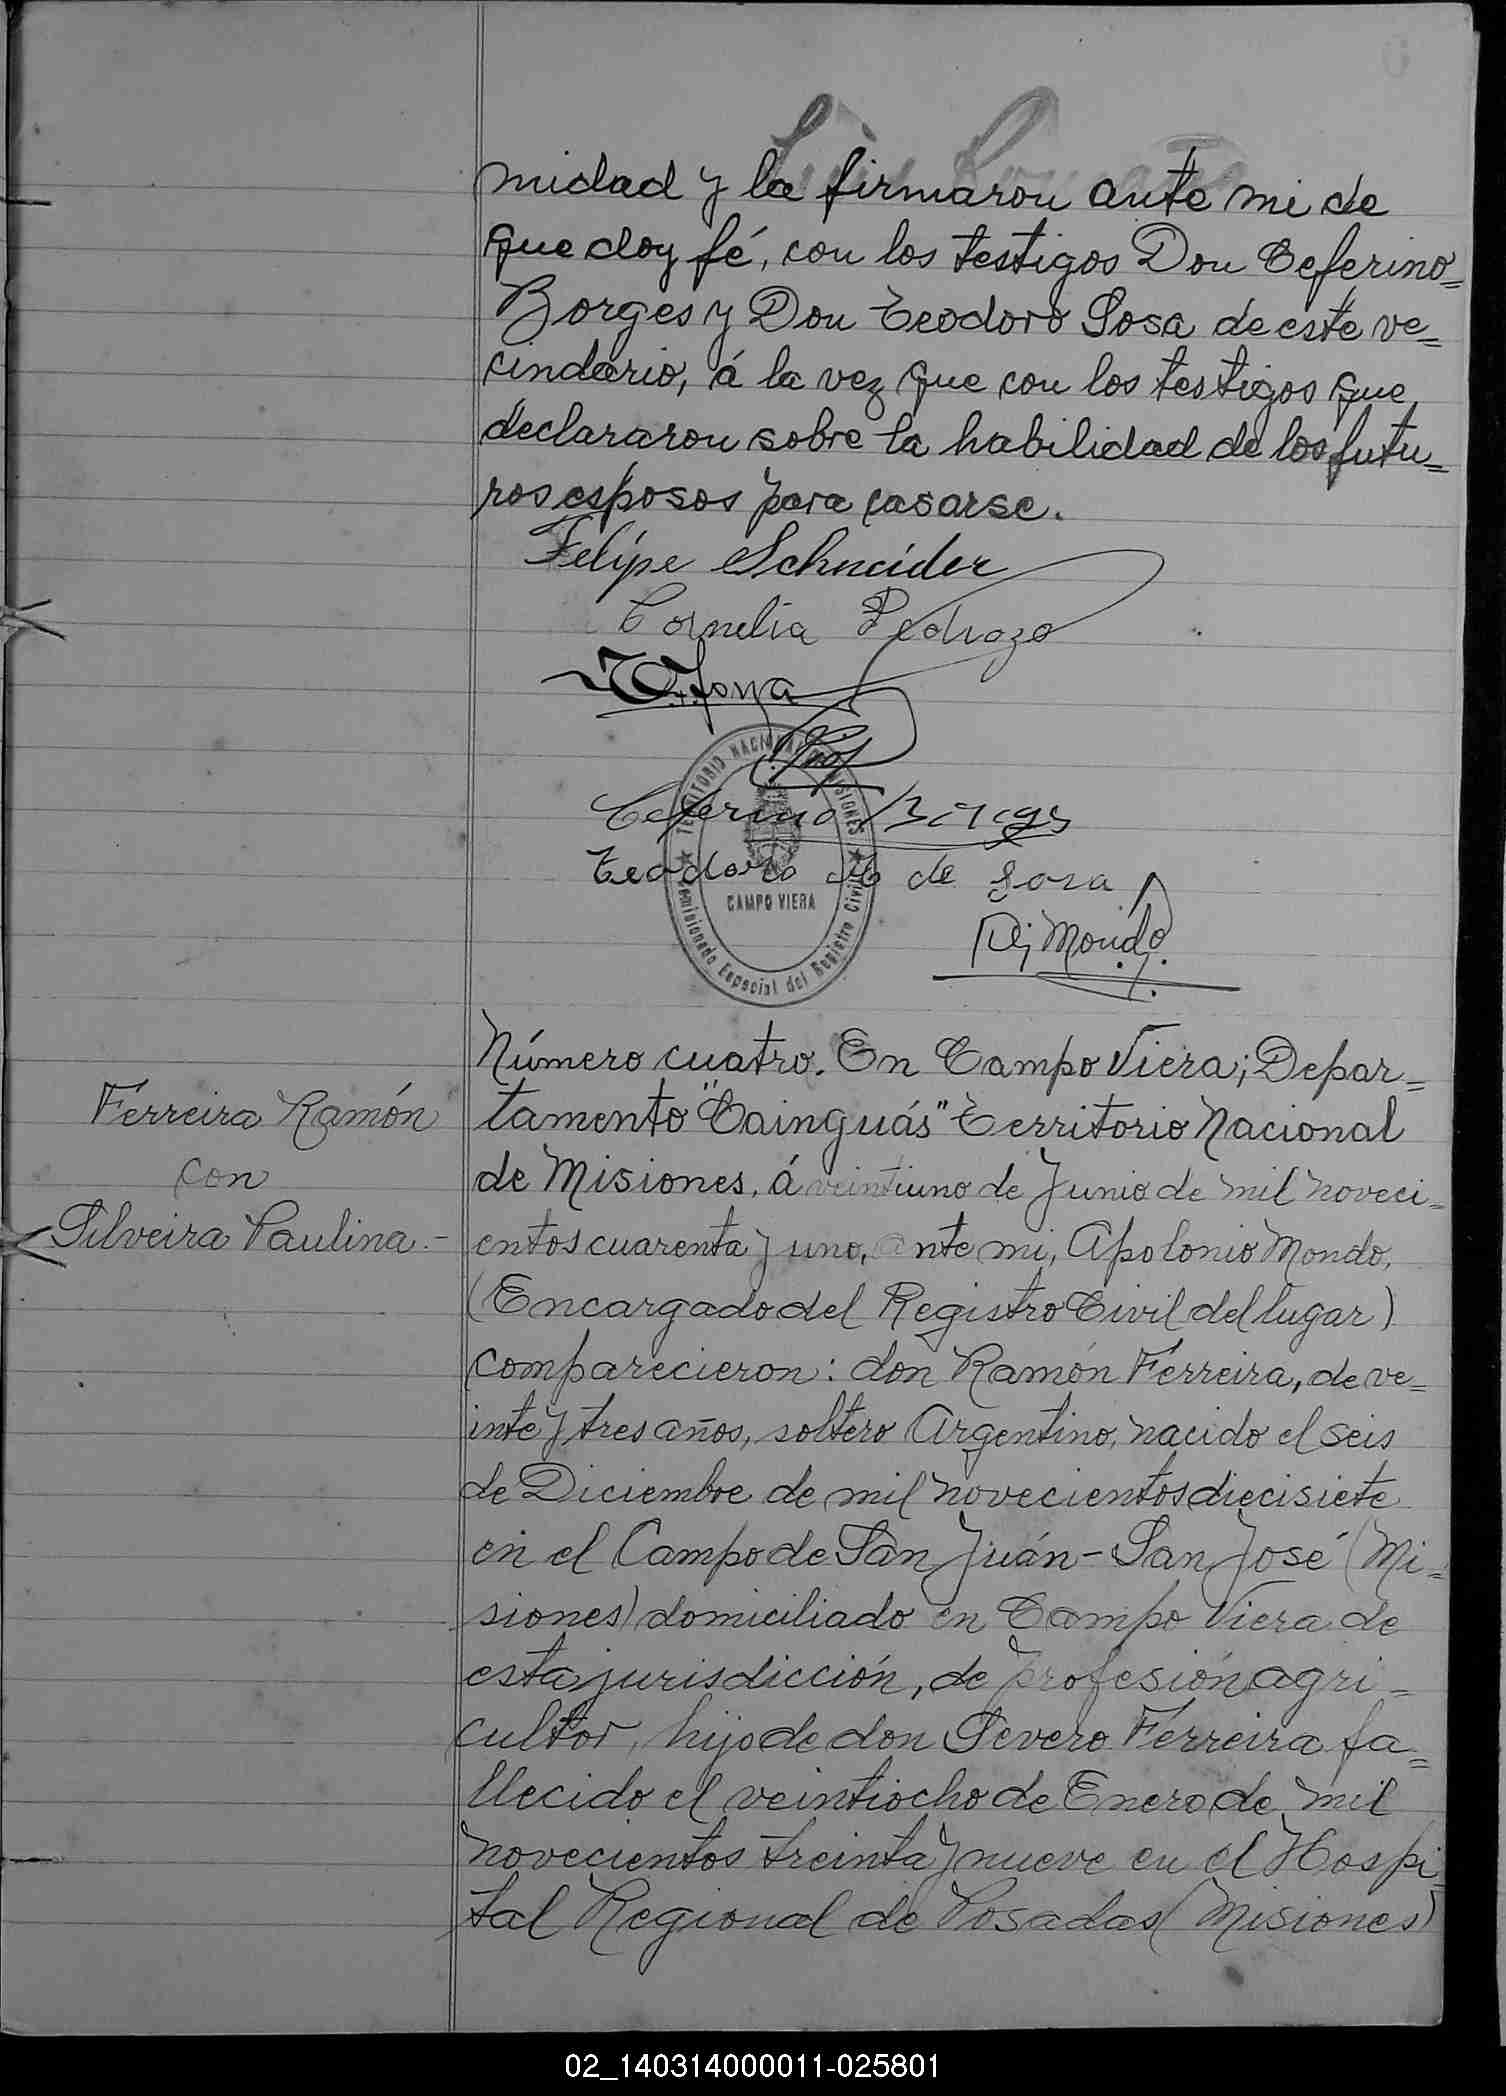 midad y la firmaron ante mi de
que doy fé, con los testigos Don Ceferino=
Borges y Don Teodoro Sosa de este ve=
cindario, á la vez que con los testigos que
declararon sobre la habilidad de los futu=
ros esposos para casarse.
Felipe Schneider
Cornelia Pedrozo
TERRITORIO NACIONAL DE MISIONES
Ceferino Borges
Teodoro de Sosa
CAMPO VIERA
Comisionado Especial del Registro Civil
Mondo
Número cuatro. En Campo Viera; Depar=
tamento "Cainguás" Territorio Nacional
de Misiones, á veintiuno de Junio de mil noveci=
entos cuarenta y uno, ante mi, Apolonio Mondo,
(Encargado del Registro Civil del lugar)
comparecieron: don Ramón Ferreira, de ve=
inte y tres años, soltero Argentino, nacido el seis
de Diciembre de mil novecientos diecisiete
en el Campo de San Juán-San José (Mi=
siones) domiciliado en Campo Viera de
esta jurisdicción, de profesión agri=
cultor, hijo de don Severo Ferreira fa=
llecido el veintiocho de Enero de mil
novecientos treinta y nueve en el Hospi
tal Regional de Posadas (Misiones)
Ferreira Ramón
con
Silveira Paulina.-
02_140314000011-025801